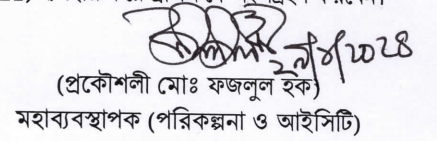 ২৭/৮/2024
(প্রকৌশলী মোঃ ফজলুল হক)
মহাব্যবস্থাপক (পরিকল্পনা ও আইসিটি)